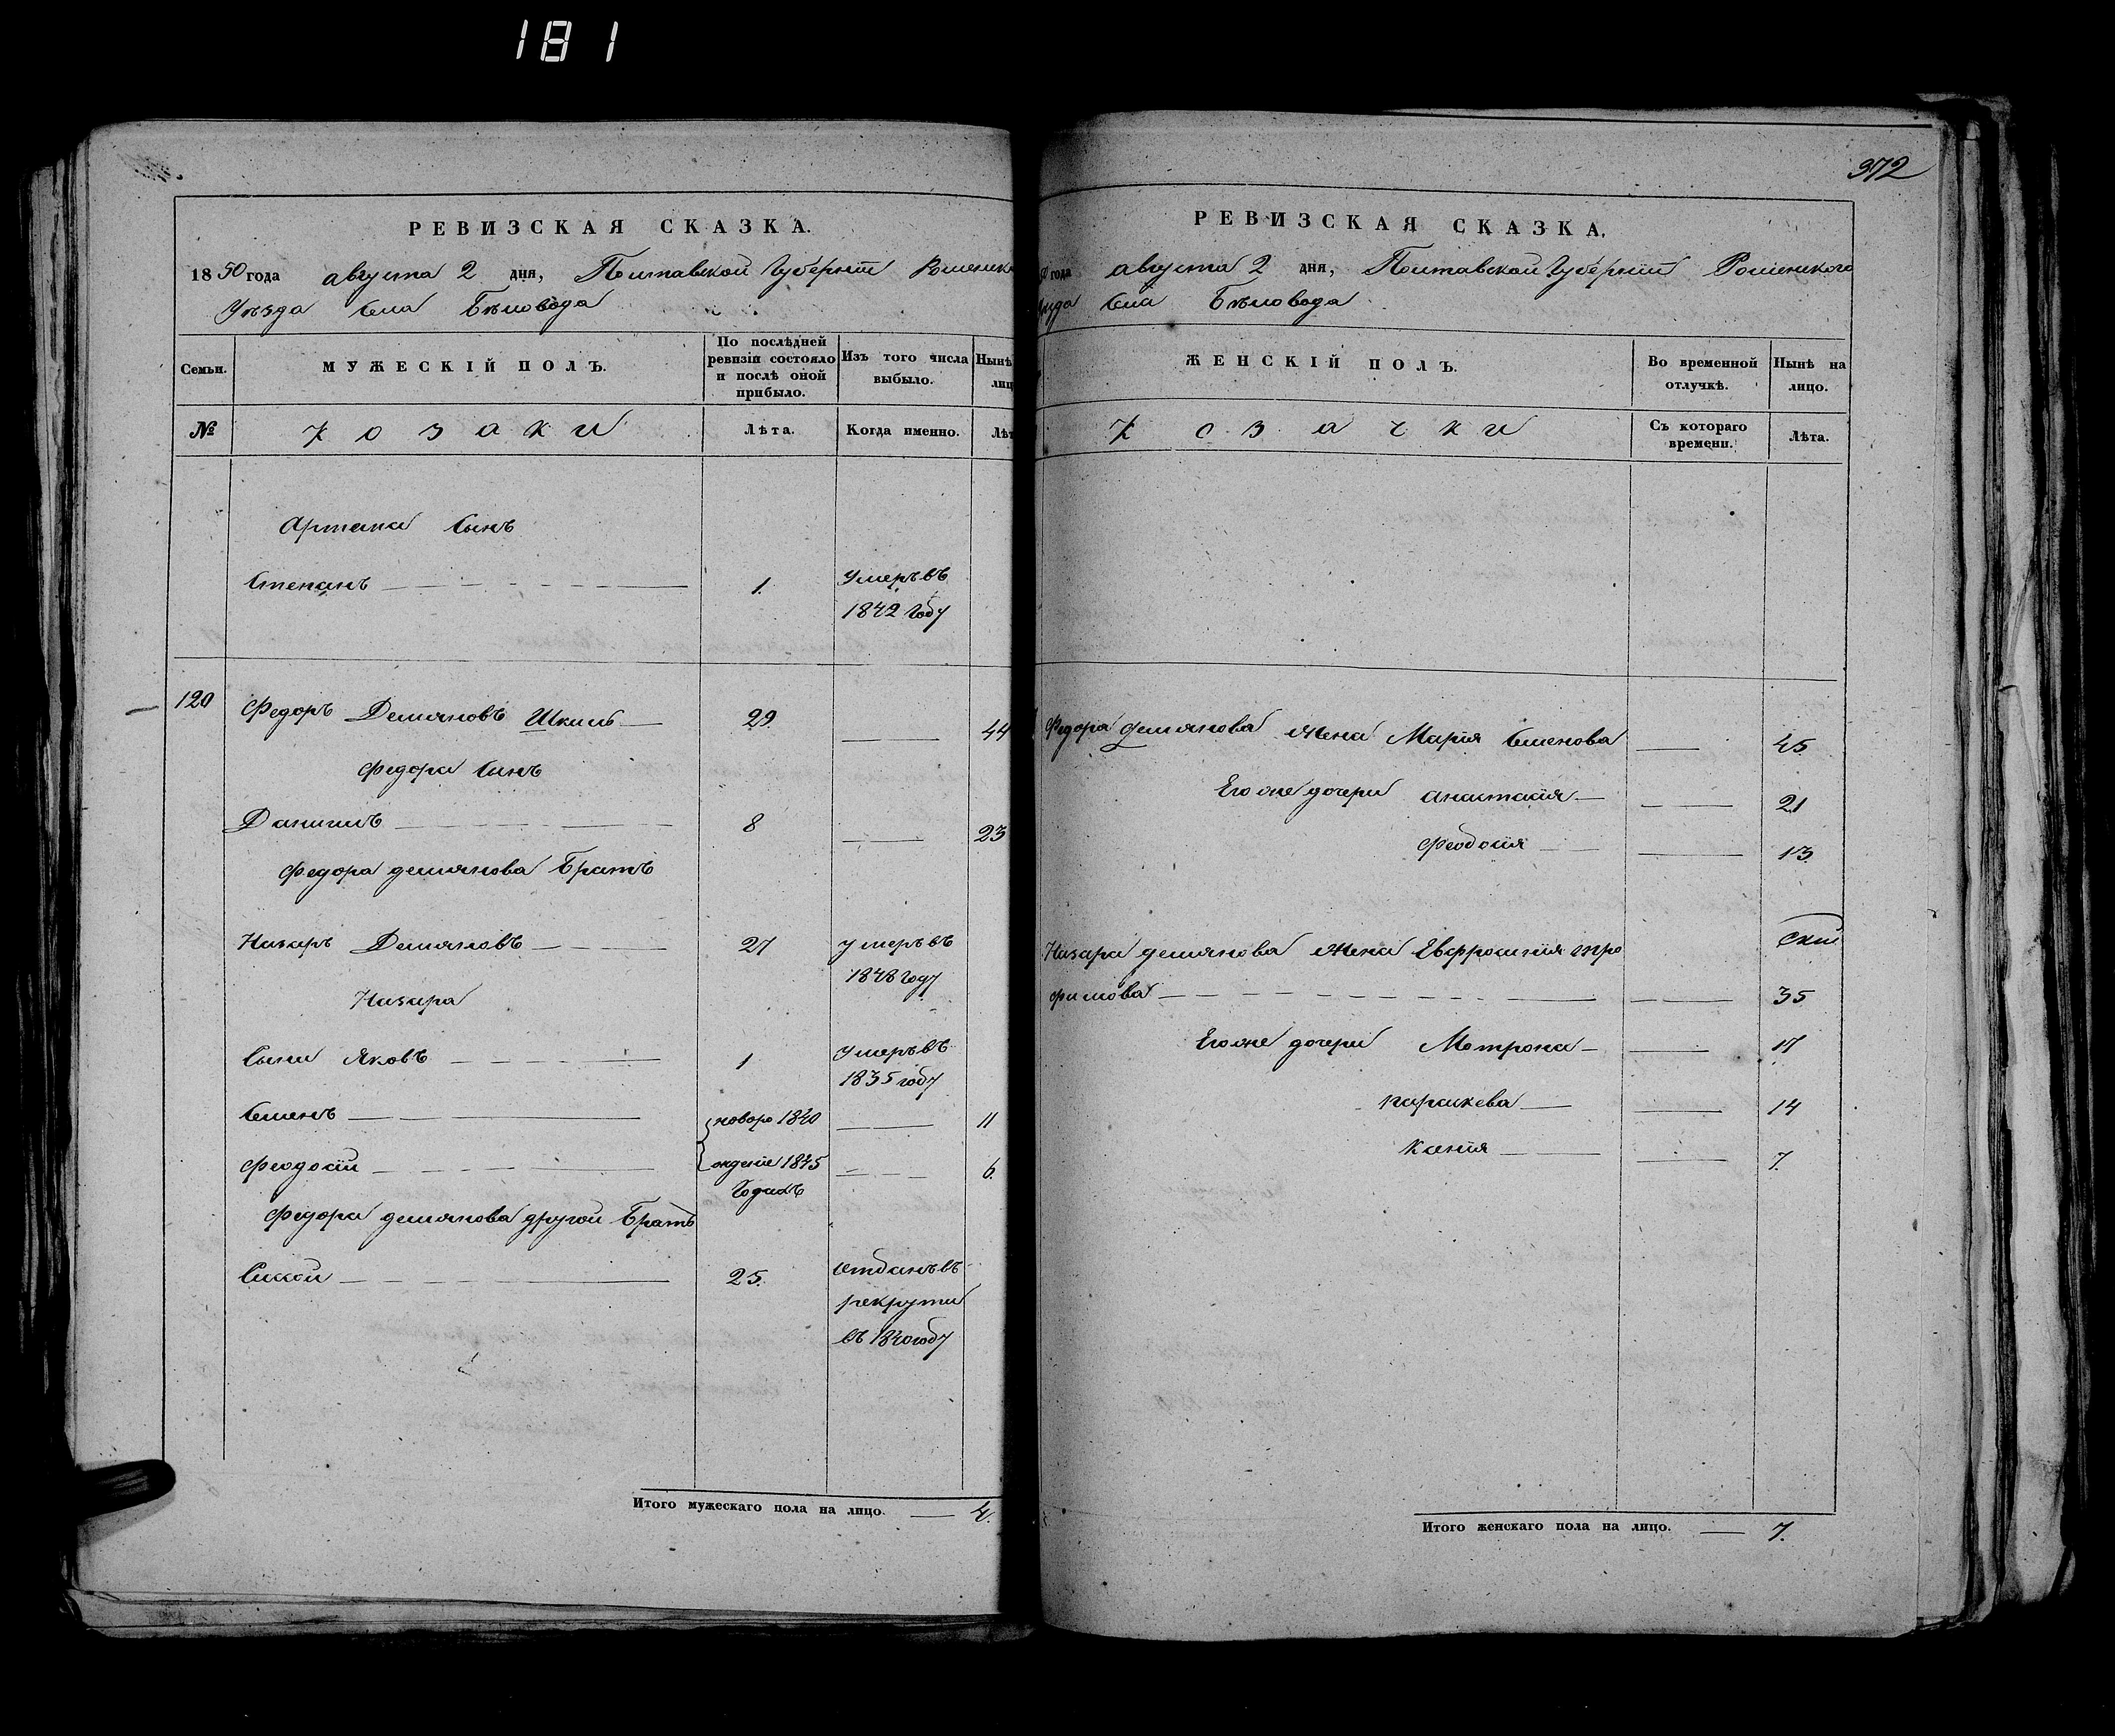 181
РЕВИЗСКАЯ СКАЗКА.
1850 года августа 2 дня, Полтавской Губернiи Роменск
Уѣзда Села Бѣловода
Семьи.
МУЖЕСКІЙ ПОЛЪ.
По послѣдней ревизіи состояло и послѣ оной прибыло.
Изъ того числа выбыло.
Нынѣ лиц
№
Козаки
Лѣта.
Когда именно.
Лѣт
Артема Сынъ
Степанъ 1. умеръ въ
1842 году
120 Федоръ Демяновъ Шкиль 29. 44
Федора Сынъ
Данилъ 8 23
Федора демянова Братъ
Назаръ Демяновъ 27 умеръ въ
1848 году
Назара
Сыни Яковъ 1 умеръ въ
1835 году
Семенъ новоро 1840 11
Феодосiй ждение 1845 6.
Годахъ
Федора демянова другой Братъ
Сисой 25. отданъ въ
рекруты
въ 1840 году
Итого мужескаго пола на лицо. 4.
372
РЕВИЗСКАЯ СКАЗКА.
0 года августа 2 дня, Полтавской Губернiи Роменского
уезда Села Бѣловода
ЖЕНСКІЙ ПОЛЪ.
Во временной отлучкѣ.
Нынѣ на лицо.
Козачки
Съ котораго времени.
Лѣта.
Федора демянова жена Марiя Семенова 45
Его же дочери анастасiя 21
Феодосiя 13.
Назара демянова жена Евфросинiя тро
фимова 35
Его же дочери Мотрона 17
параскева 14
Ксенiя 7.
Итого женскаго пола на лицо. 7.